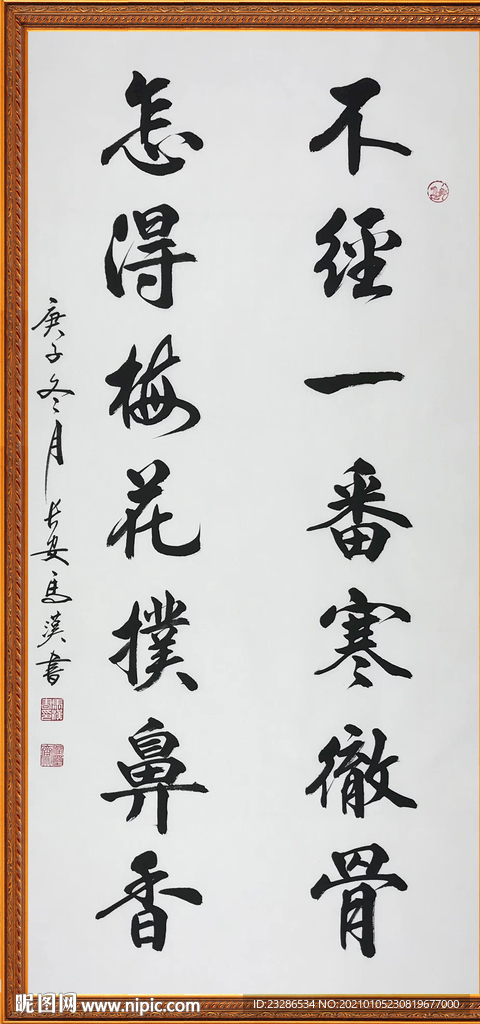 不經一番寒徹骨
怎得梅花撲鼻香
庚子冬月長安馬漢書
昵图网 www.nipic.com
ID:23286534 NO:20210105230819677000